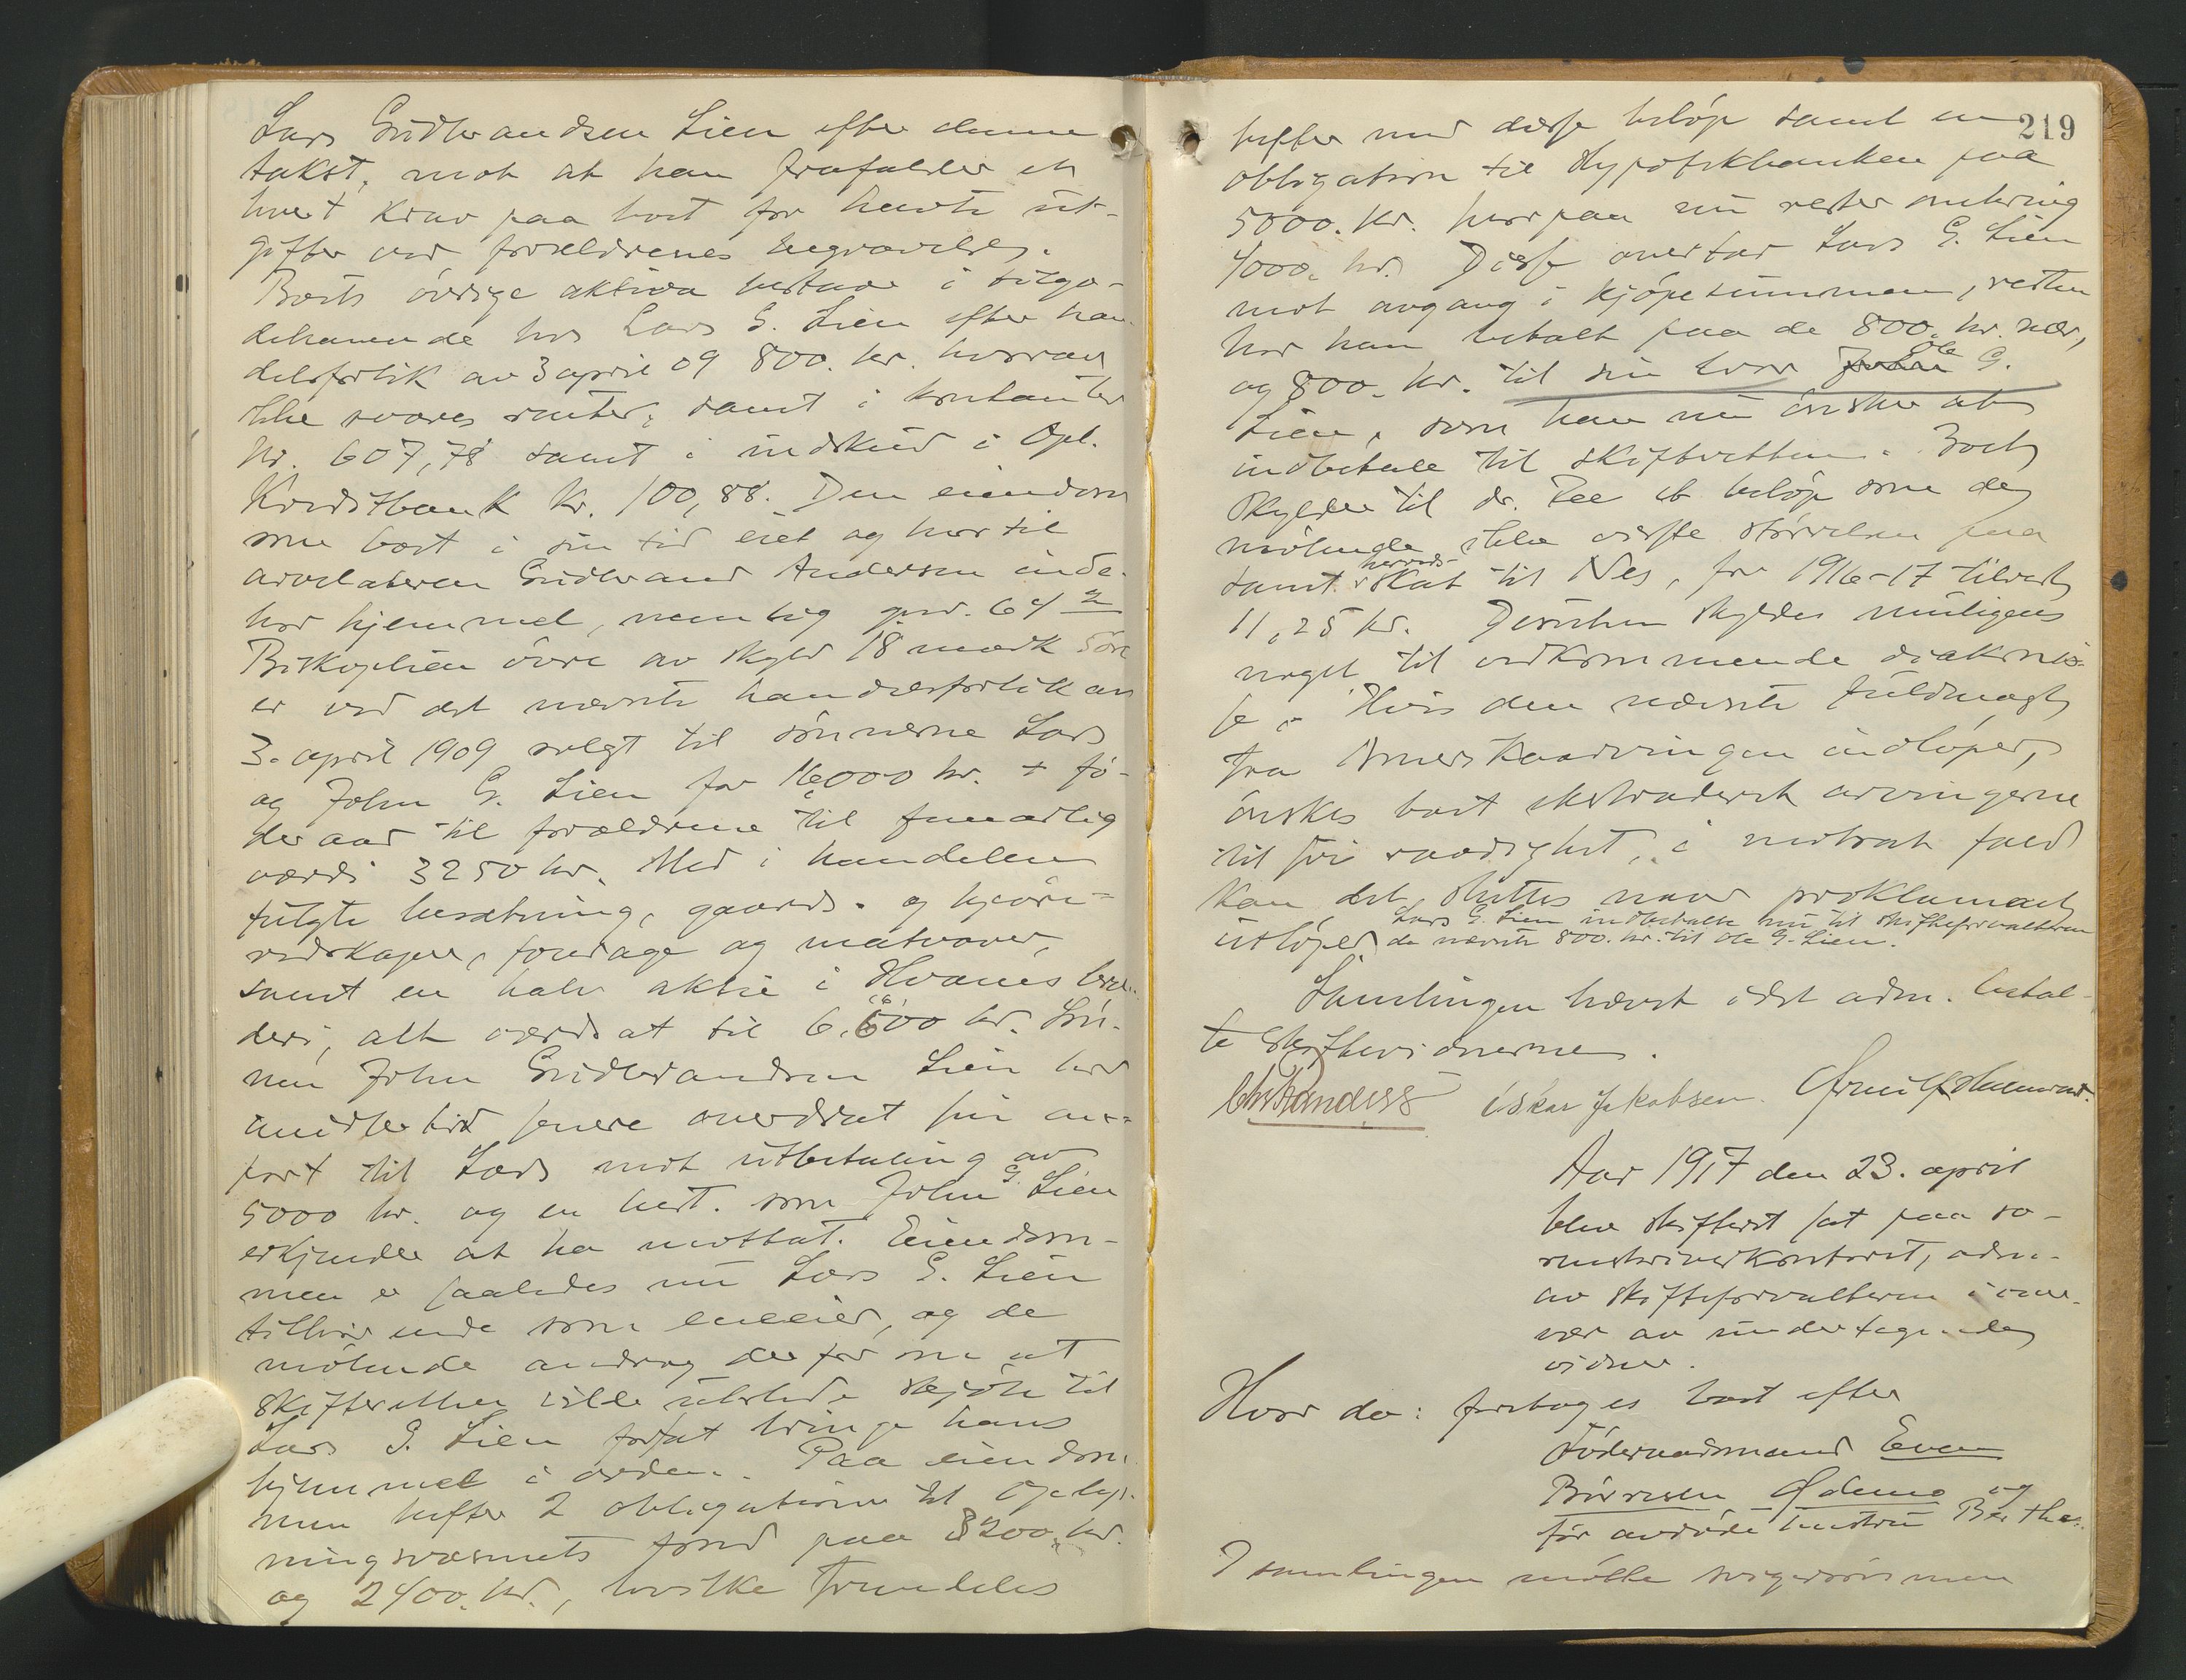 Lars Gudbrandsen Lien efter denne
takst, mot at han frafalder et
hvert krav paa boet for havte ut-
gifter ved forældrenes begravelse.
Boets övrige aktiva bestaar i tilgo-
dehavende hos Lars G. Lien efter han-
delsforlik av 3 april 09 800. kr. hvorav
ikke svares renter, samt i kontanter
kr. 607,78 samt i indskud i Opl.
Kreditbank kr. 100,88. Den eiendom
som boet i sin tid eiet og hvortil
arvelateren Gudbrand Andersen inde-
har hjemmel, nemlig gno. 64 2
Biskoplien övre av skyld 18 mark
er ved det nævnte handelsforlik av
3. april 1909 solgt til sönnerne Lars
og John G. Lien for 16,000 kr. + fö-
deraad til forældrene til femaarlig
værdi 3250 kr. Med i handelen
fulgte besætning, gaards- og kjöre-
redskaper, fourage og matvarer,
samt en halv aktie i
deri, alt værdsat til 6.600 kr. Sön-
nen John Gudbrandsen Lien har
imidlertid senere overdrat sin an-
part til Lars mot utbetaling av
5000 kr. og en hest. som John G. Lien
erkjender at ha mottat. Eiendom-
men er saaledes nu Lars G. Lien
tilhörende som eneeier, og de
mötende androg derfor om at
skifteretten ville utstede skjöte til
Lars G. Lien forsat bringe hans
hjemmel i orden. Paa eiendom-
men hefter 2 obligationer til Oplys-
ningsvæsenets fond paa 3200. kr.
og 2400. kr., hvilke fremdeles
219
hefter med disse belöp samt en
obligation til Hypotekbanken paa
5000. kr. hvorpaa nu rester omkring
4000. kr. Disse overtar Lars G. Lien
mot avgang i kjöpesummen, resten
har han betalt paa de 800. kr. nær,
og 800. kr. til sin bror John Ole G.
Lien, som han nu önsker at
indbetale til skifteretten. Boet
skylder til dr. Lee et belöp som de
mötende ikke visste störrelsen paa
samt herreds-skat til Nes, for 1916-17 tilvest
11,25 kr. Desuten skyldes muligens
noget til vedkommende diakonis-
se. Hvis den nævnte fuldmagt
fra Amerikaarvingen indlöper,
önskes boet ekstraderet arvingerne
til fri raadighet, i motsat fald
kan det sluttes naar proklamaet
utlöper. Lars G. Lien indbetalte nu til skifteforvalteren
de nævnte 800. kr. til Ole G. Lien.
Samlingen hævet idet adm. betal-
te skiftevidnerne.
Oskar Jakobsen.
Aar 1917 den 23. april
blev skifteret sat paa so-
renskriverkontoret, adm.
av skifteforvalteren i over-
vær av undertegnede
vidner.
Hvor da: foretoges boet efter
föderaadsmand Even
Börresen Ödemo og
før avdøde hustru Berthe.
I samlingen mötte svigersönnen